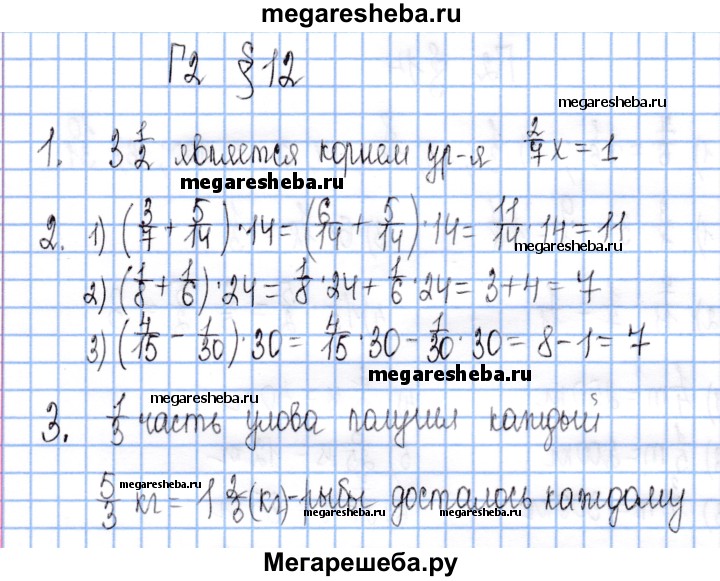 megaresheba.ru
Г2 § 12
megaresheba.ru
1. 3 1/2 является корнем ур-я 2/7 x = 1
megaresheba.ru
2. 1) (3/7 + 5/14) · 14 = (6/14 + 5/14) · 14 = 11/14 · 14 = 11
megaresheba.ru
2) (1/8 + 1/6) · 24 = 1/8 · 24 + 1/6 · 24 = 3 + 4 = 7
3) (4/15 - 1/30) · 30 = 4/15 · 30 - 1/30 · 30 = 8 - 1 = 7
megaresheba.ru
megaresheba.ru
3. 1/3 часть улова получил каждый
5/3 кг = 1 2/3 (кг) - рыбы досталось каждому
megaresheba.ru
megaresheba.ru
megaresheba.ru
Мегарешеба.ру